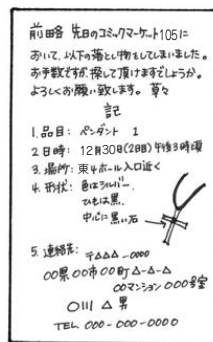 前略 先日のコミックマーケット105に
おいて、以下の落とし物をしてしまいました。
お手数ですが、探して頂けますでしょうか。
よろしくお願い致します。 草々
記
1.品目: ペンダント 1
2.日時: 12月30日(2日目)午後3時頃
3.場所: 東4ホール入口近く
4.形状: 色はシルバー、
ひもは黒、
中心に黒い石
5.連絡先: 〒△△△-0000
00県00市00町△-△-△
00マンション 000号室
〇川 △男
TEL. 000-000-0000